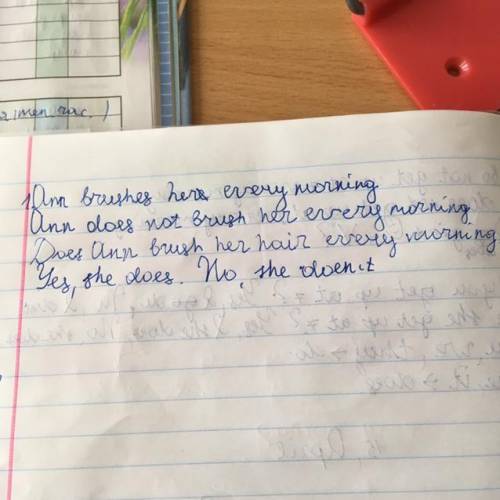 imen rac. )
1) Ann brushes here every morning
Ann does not brush her every morning
Does Ann brush her hair every morning
Yes, she does. No, she doen't